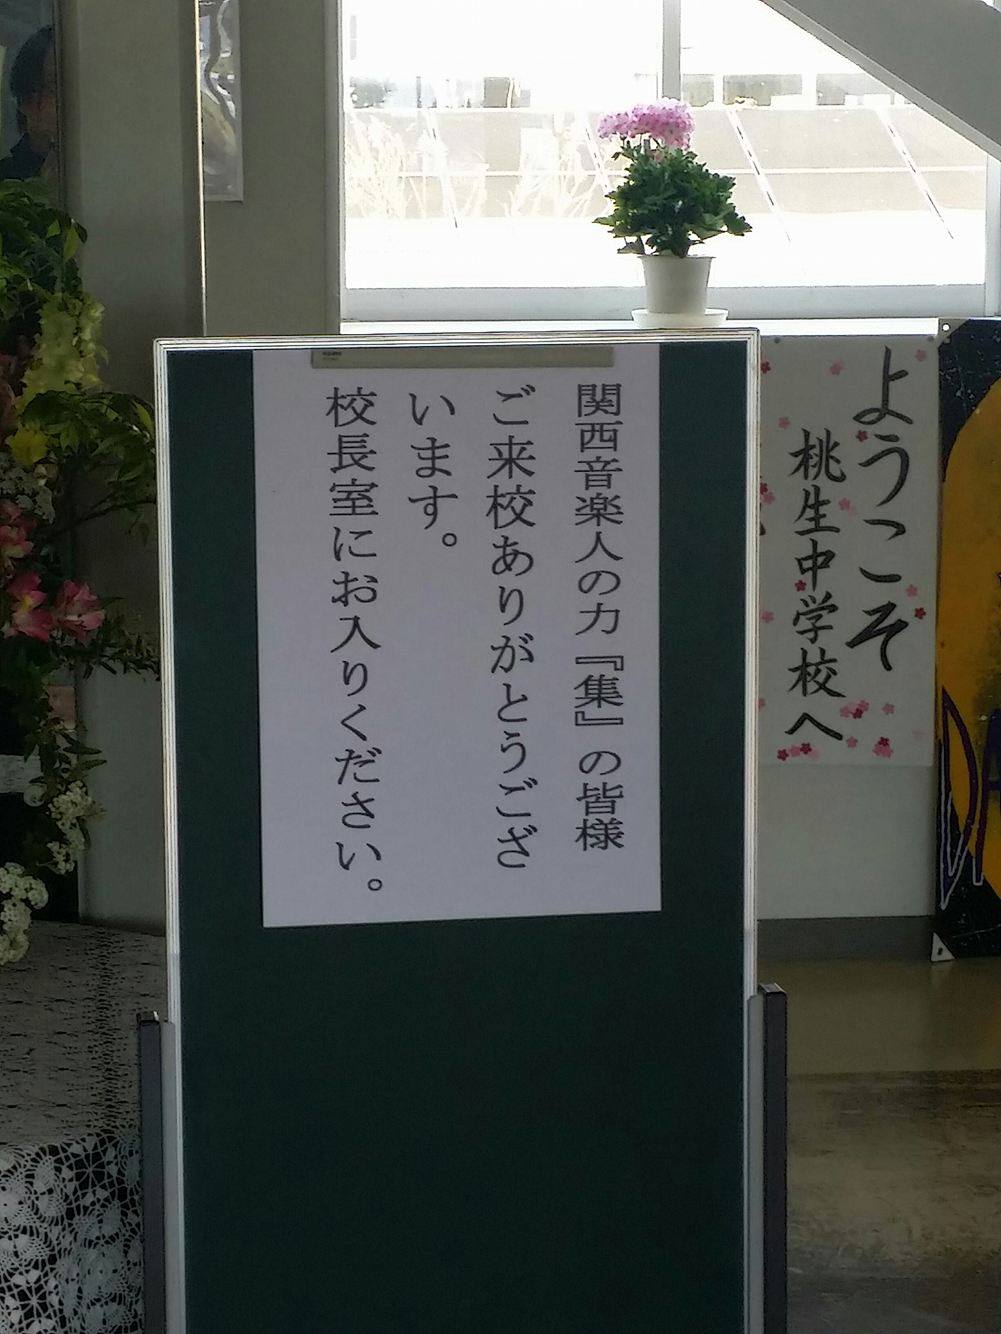 関西音楽人の力『集』の皆様
ご来校ありがとうござ
います。
校長室にお入りください。
ようこそ
桃生中学校へ
DA